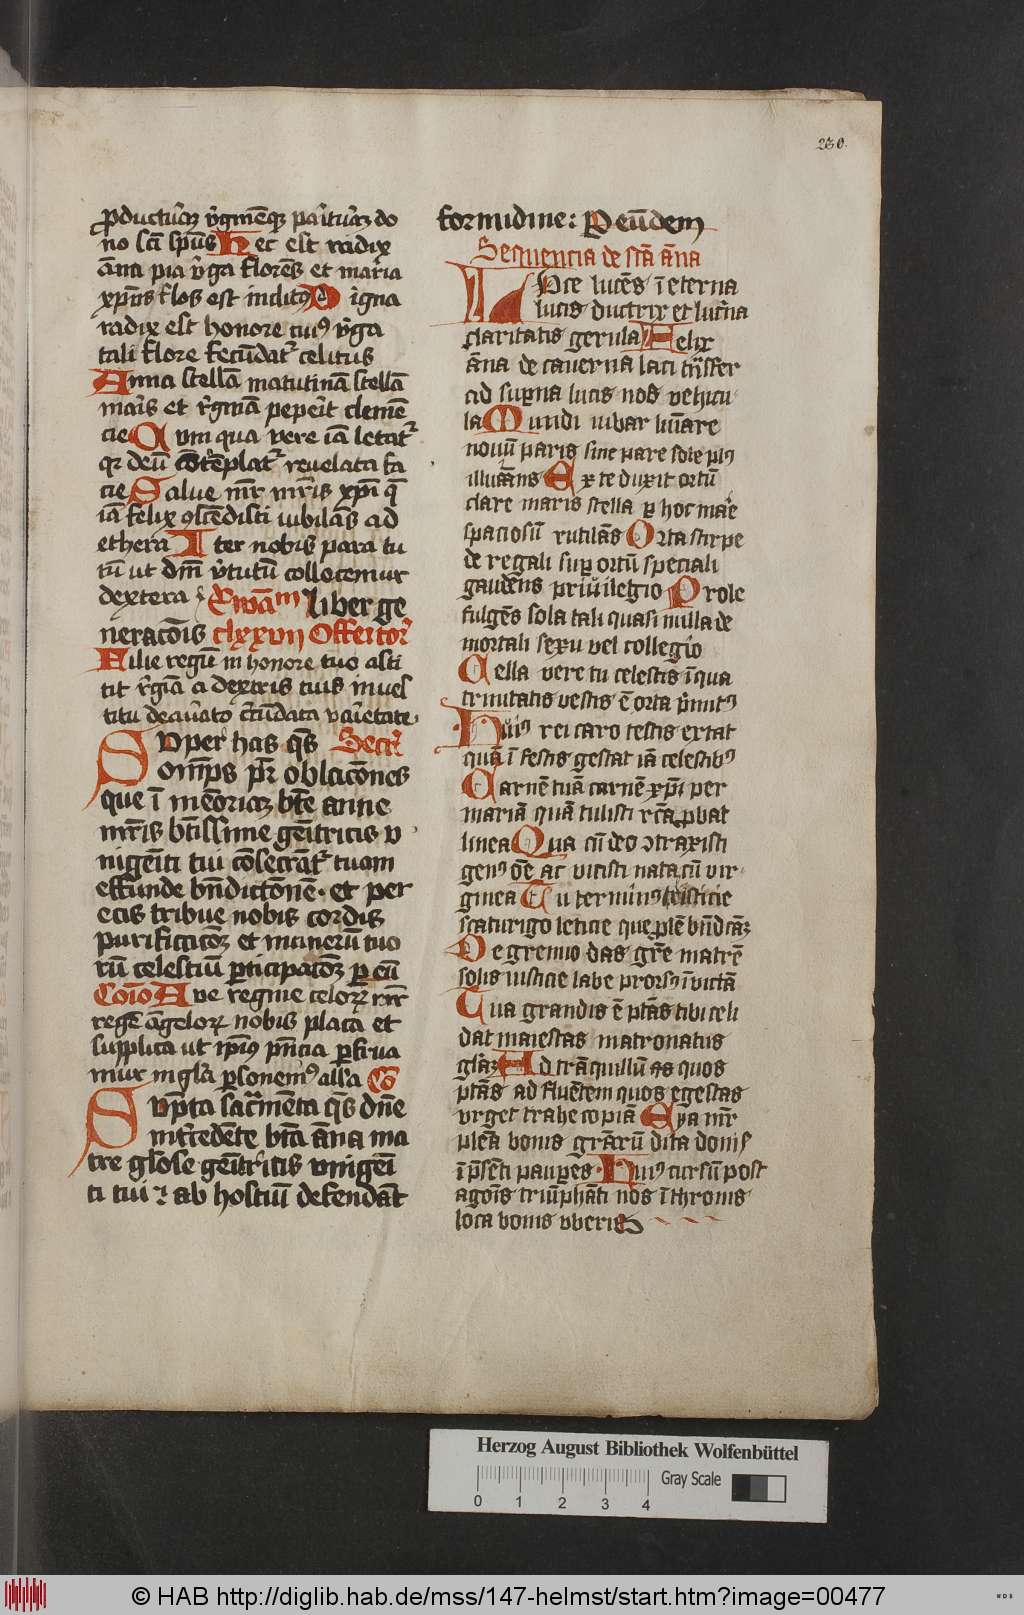 230.
ꝓductuꝝ v̾gineꝫ pa̾ituꝝ do
no scī spūs Hec est radix
āna pia v̾ga florēs et maria
xp̄us flos est inclitꝰ Digna
radix est honore cuiꝰ v̾ga
tali flore fecūdat᷑ celitus
Anna stellā matutinā stellā
maris et v̾ginā peperit clemē
cie Qum qua vere iā letat᷑
qꝛ deū cōtēplat᷑ reuelata fa
cie Salue mr̄ mr̄is xp̄i q̄
iā felix ꝯscēdisti iubilās ad
ethera Iter nobis para tu
tū ut dm̄ v̾tutū collocemur
dextera Ewām liber ge
neracōis clxxvii Offertor᷑
Filie regū in honore tuo asti
tit r̄gia a dextris tuis in ves
titu deau̾ato c̾cūdata va̾ietate
Super has q̄s Secr᷑
omīps pr̄ oblacōnes
que ī mēoriaꝫ bt̄e anne
mr̄is bt̄issime gēitricis v
nigēiti tui cōsecrāt᷑ tuam
effunde bn̄dictōnē et per
ecis tribue nobis cordis
purificacōꝫ et munerū tuo
rū celestiū ꝑticipacōꝫ ꝑ eū
Cōio Aue regine celoꝝ mr̄
regē āgeloꝝ nobis placa et
supplica ut ip̄iꝰ pn̄cia ꝑfrua
mur in gl̄a ꝑsonemꝰ all̄a Cō
Sūpta sacr̄mēta q̄s dn̄e
int̾cedēte bt̄a āna ma
tre gl̄ose gēitricis vnigēi
ti tui ⁊ ab hostiū defendāt
formidine: Per eūdem
Sequencia de sctā āna
Luce lucēs ī eterna
lucis ductrix et luc̾na
claritatis gerula Felix
āna de cauerna laci trāsfer
ad suꝑna lucis nos vehicu
la Mundi iubar lūnare
nouū paris sine pare sole pꝰ
illuīans Ex te duxit ortū
clare maris stella ꝑ hoc mar̄e
spaciosū rutilās Orta stirpe
de regali suꝑ ortū speciali
gaudēns priuilegio Prole
fulgēs sola tali quasi nulla de
mortali sexu vel collegio
Cella vere tu celestis ī qua
trinitatis vestis ē orta pͥmitꝰ
Huiꝰ rei caro testis extat
quā ī festis gestat iā celestibꝰ
Carnē tuā carnē xp̄i per
mariā quā tulisti rc̄ā ꝓbat
linea Qua cū deo ꝯtraxisti
genꝰ oē ac vicisti nata cū vir
ginea Tu terminꝰ tristicie
scaturigo leticie que plē bn̄dcāꝫ
De gremio das gr̄e matrē
solis iusticie labe prorsꝰ īuictā
Tua grandis ē p̄tās tibi celi
dat maiestas matronatus
gl̄aꝫ Ad trāquillū as quos
p̄tās ad fluētem quos egestas
vrget trahe copiā Eya mr̄
plēa bonis gr̄arū dita donis
ī p̄sēti paupēs Huiꝰ cursū post
agōis triūphāti nos ī thronis
loca bonis vberis
Herzog August Bibliothek Wolfenbüttel
Gray Scale
0 1 2 3 4
© HAB http://diglib.hab.de/mss/147-helmst/start.htm?image=00477